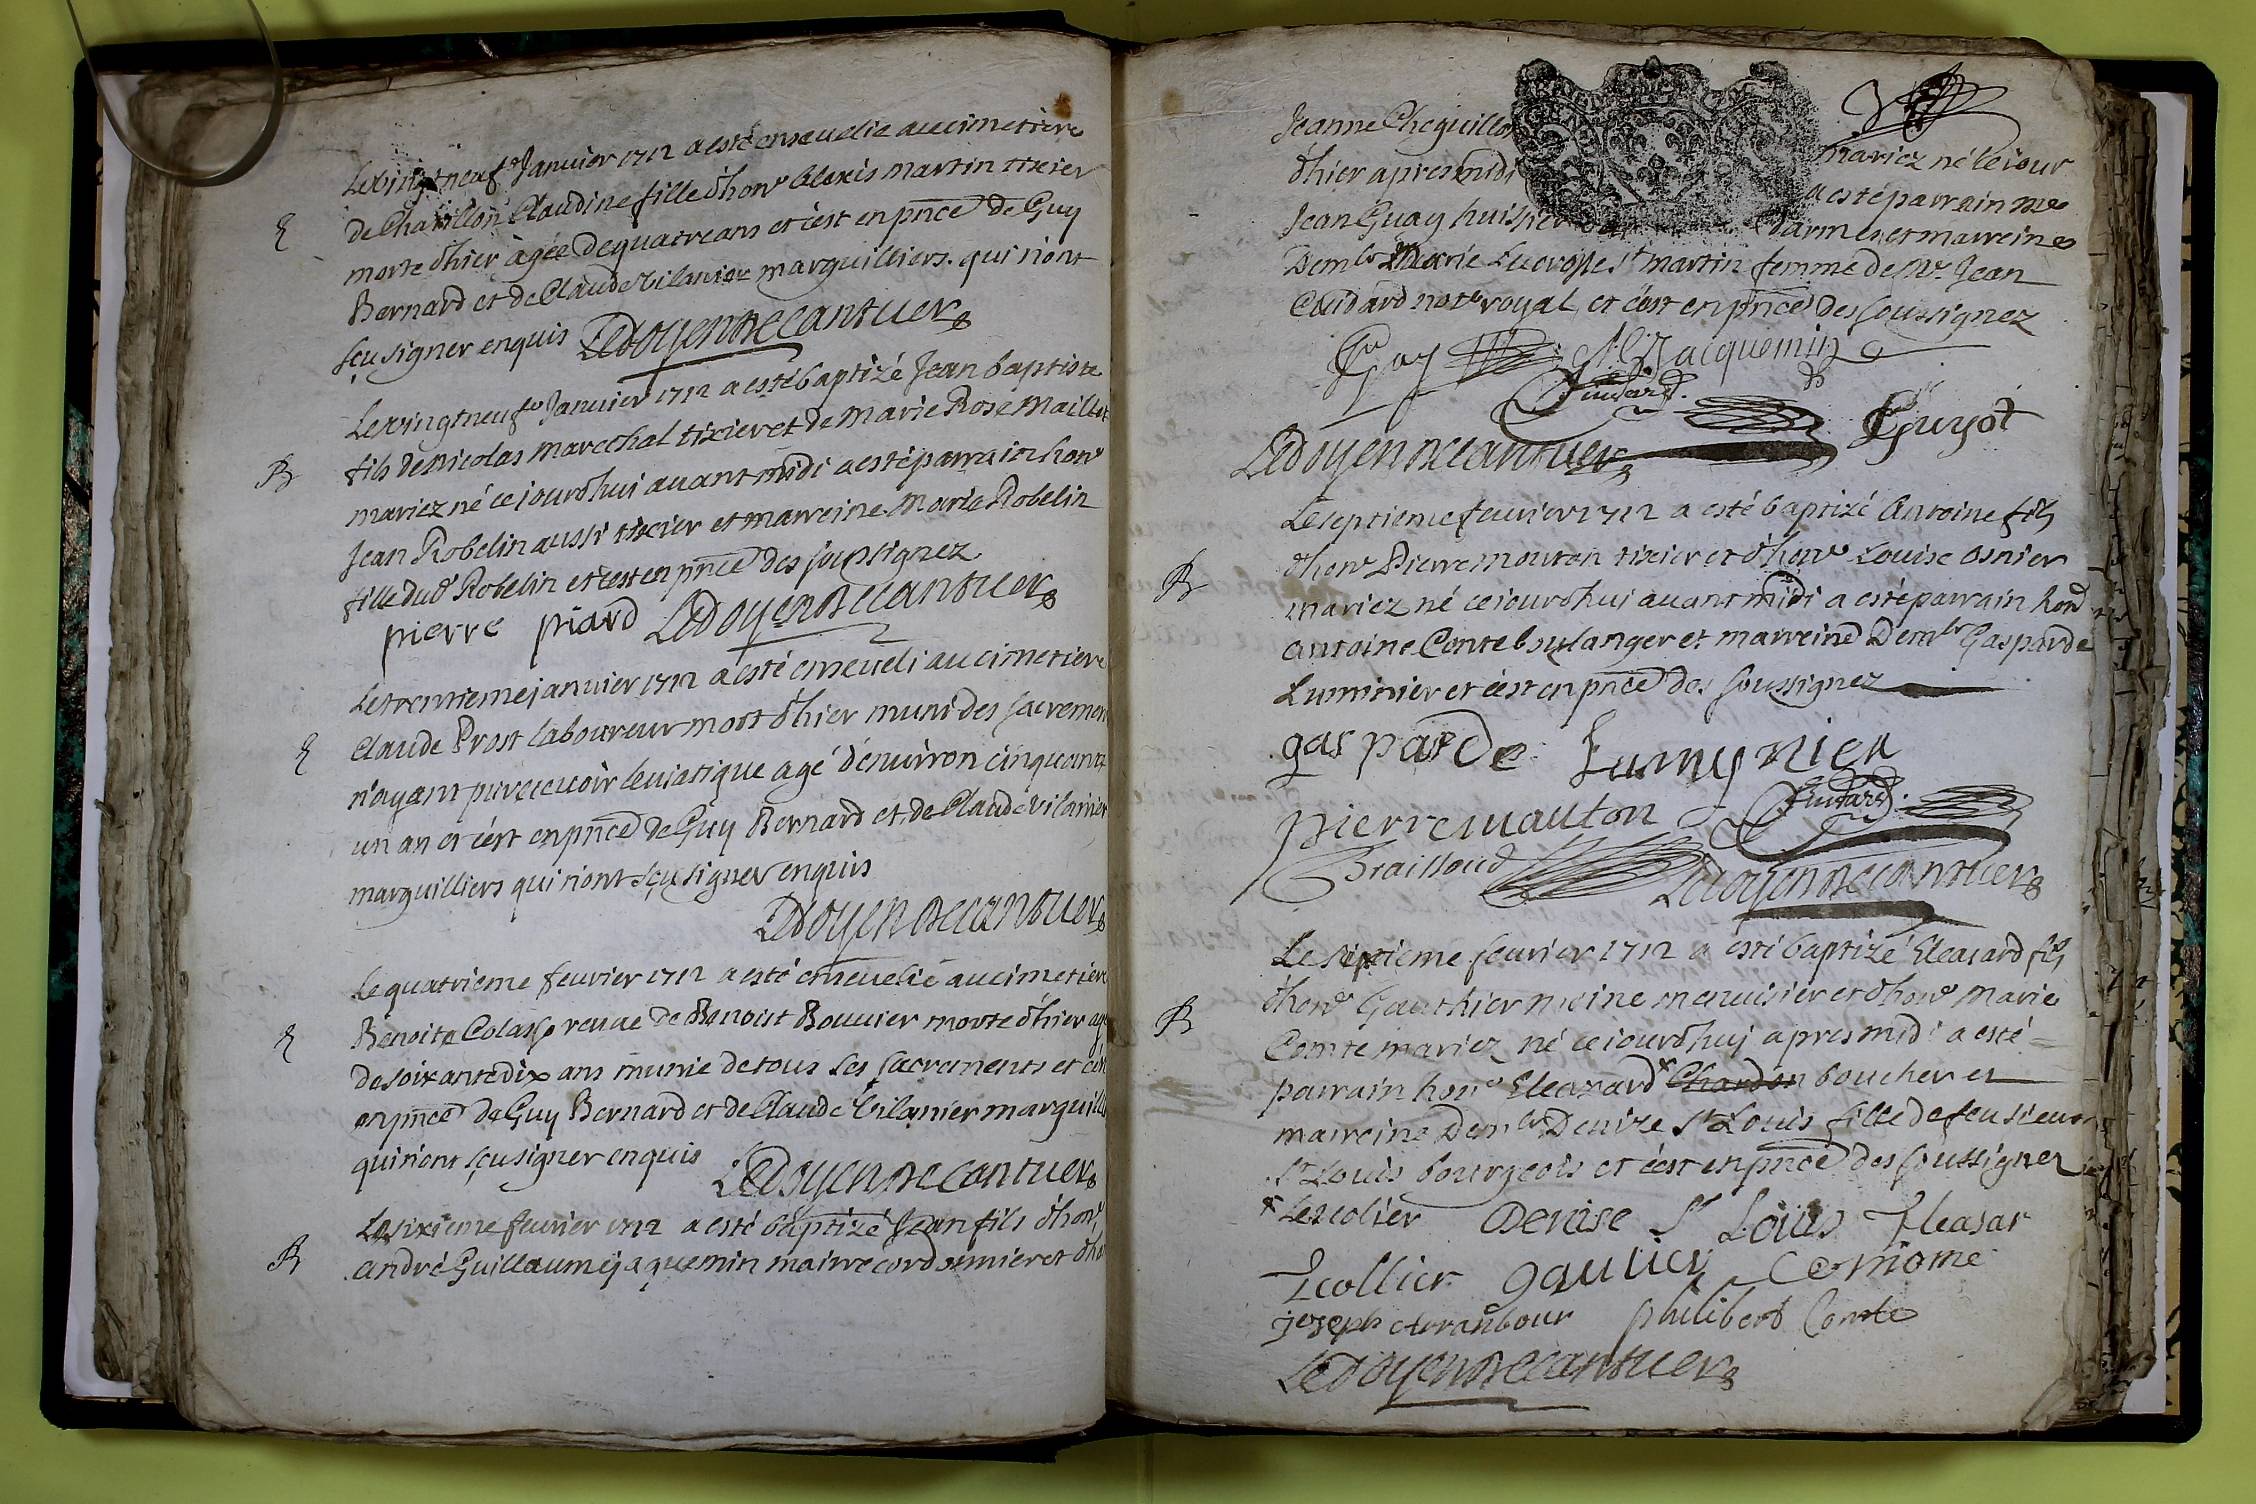 Le vingt neufe Janvier 1712 a esté ensevelie au cimetiere
E de Chatillon Claudine fille d'hone Alexis martin tixier
morte d'hier àgée de quatre ans et c'est en pnce de Guy
Bernard et de Claude Vilanier marguilliers qui n'ont
sçu signer enquis Ledoyen De cantuer
Le vingt neufe Janvier 1712 a esté baptizé Jean baptiste
B fils de Nicolas marechal tixier et de Marie Rose Maillet
mariez né ce jourd'hui avant midi a esté parrain hone
Jean Robelin aussi tixier et marreine Marie Robelin
fille dud Robelin et c'est en pnce des soussignez
pierre piard Ledoyen De cantuer
Le trentieme janvier 1712 a esté enseveli au cimetiere
E Claude Prost laboureur mort d'hier muni des sacremen
n'ayant pu recevoir le viatique agé d'environ cinquante
un an et c'est en pnce de Guy Bernard et de Claude Vilanier
marguilliers qui n'ont sçu signer enquis
Ledoyen De cantuer
Le quatrieme fevrier 1712 a esté ensevelie au cimetiere
E Benoite Colasse veuve de Benoist Bouvier morte d'hier agé
de soixante dix ans munie de tous les sacrements et c'est
en pnce de Guy Bernard et de Claude Vilanier marguilli
qui n'ont sçu signer enquis Ledoyen De cantuer
Le sixieme fevrier 1712 a esté baptizé Jean fils d'hone
B andré Guillaume jaquemin maitre cordonnier et d'ho
Jeanne Cheguillo mariez né le jour
d'hier apres midi a esté parrain me
Jean Guay huissier darmes et marreine
Demlle Marie Lucresse St martin femme de Mr Jean
Cuidard notre royal et c'est en pnce des soussignez
Guay Jacquemin
Cuidard Guyot
Ledoyen De cantuer
Le septieme fevrier 1712 a esté baptizé Antoine fils
B d'hone Pierre mouton tixier et d'hone Louise Osnier
mariez né ce jourd'hui avant midi a esté parrain hone
antoine Conte boulanger et marreine Demlle Gasparde
Luminier et c'est en pnce des soussignez
gasparde Lumynier
pierre mauton Cuidard
Brailloud Ledoyen De cantuer
Le septieme fevrier 1712 a esté baptizé Eleasard fils
B d'hone Gauthier moine menuisier et d'hone Marie
Comte mariez né ce jourd'huy apres midi a esté
parrain hone Eleazard x Chardon boucher et
marreine Demlle Denize St Louis fille de feu sieur
St Louis bourgeois et c'est en pnce des soussignez
x Lescolier Denise St Louis Eleasar
Ecollier gautier
joseph philibert Comte
Ledoyen De cantuer